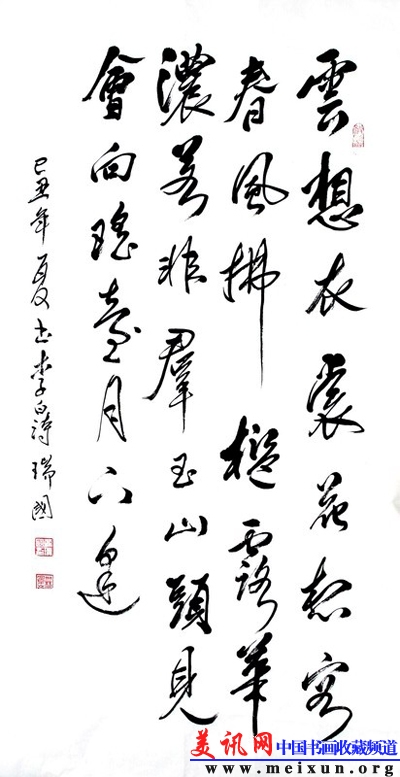 雲想衣裳花想容
春風拂檻露華
濃若非羣玉山頭見
會向瑤臺月下逢
己丑年夏书李白诗瑞國
美讯网 中国书画收藏频道
www.meixun.org